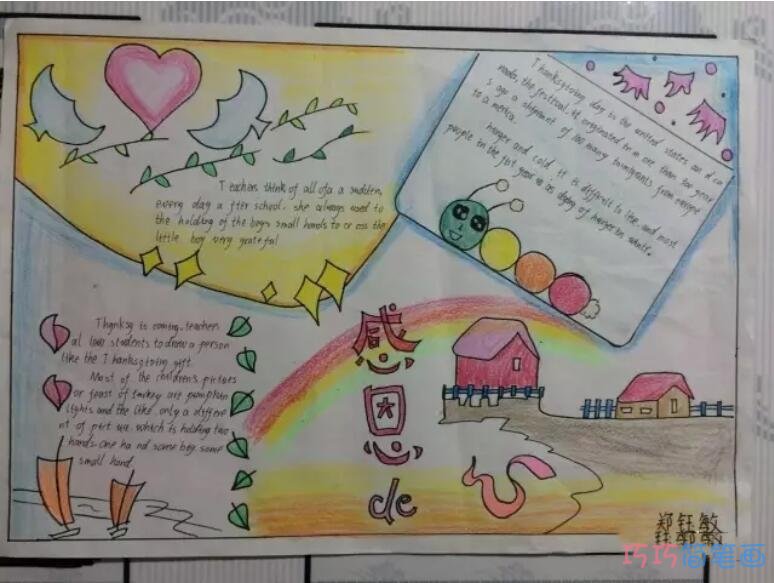 Teachers think of all of a sudden,
every day a fter school. she always used to
the holding of the boys small hands to cr oss the
little boy very grateful
Thanksgiving day is the united states an d ca
nada the festival. It originated fr m ore than 300 year
s ago a shipment of 100 many immigrants from
to a merica.
hunger and cold, it is difficult to live, and most
people in the fist year
Thanksg is coming. teachers
students to draw a person
like the T hanksgiving gift.
Most of the children's pictures
or feast of turkey are pumpkin
lights and the like. only a differe
nt of pict ure. which is holding two
hands. one ha nd some boy some
small hand.
感
恩
de
心
郑钰敏
巧巧简笔画